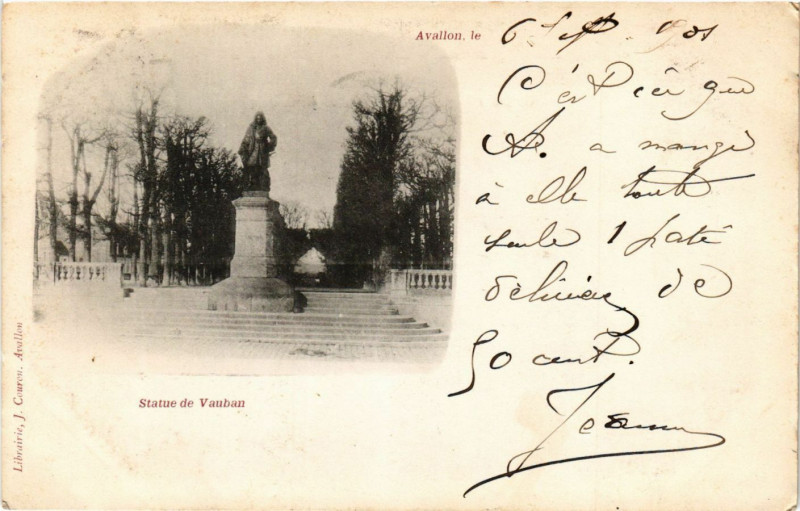 Avallon, le 6 Sept. 901
C'est ici que
A. a mangé
à elle toute
seule 1 pâté
délicieux de
50 cent.
Jeanne
Statue de Vauban
Librairie, J. Couron, Avallon